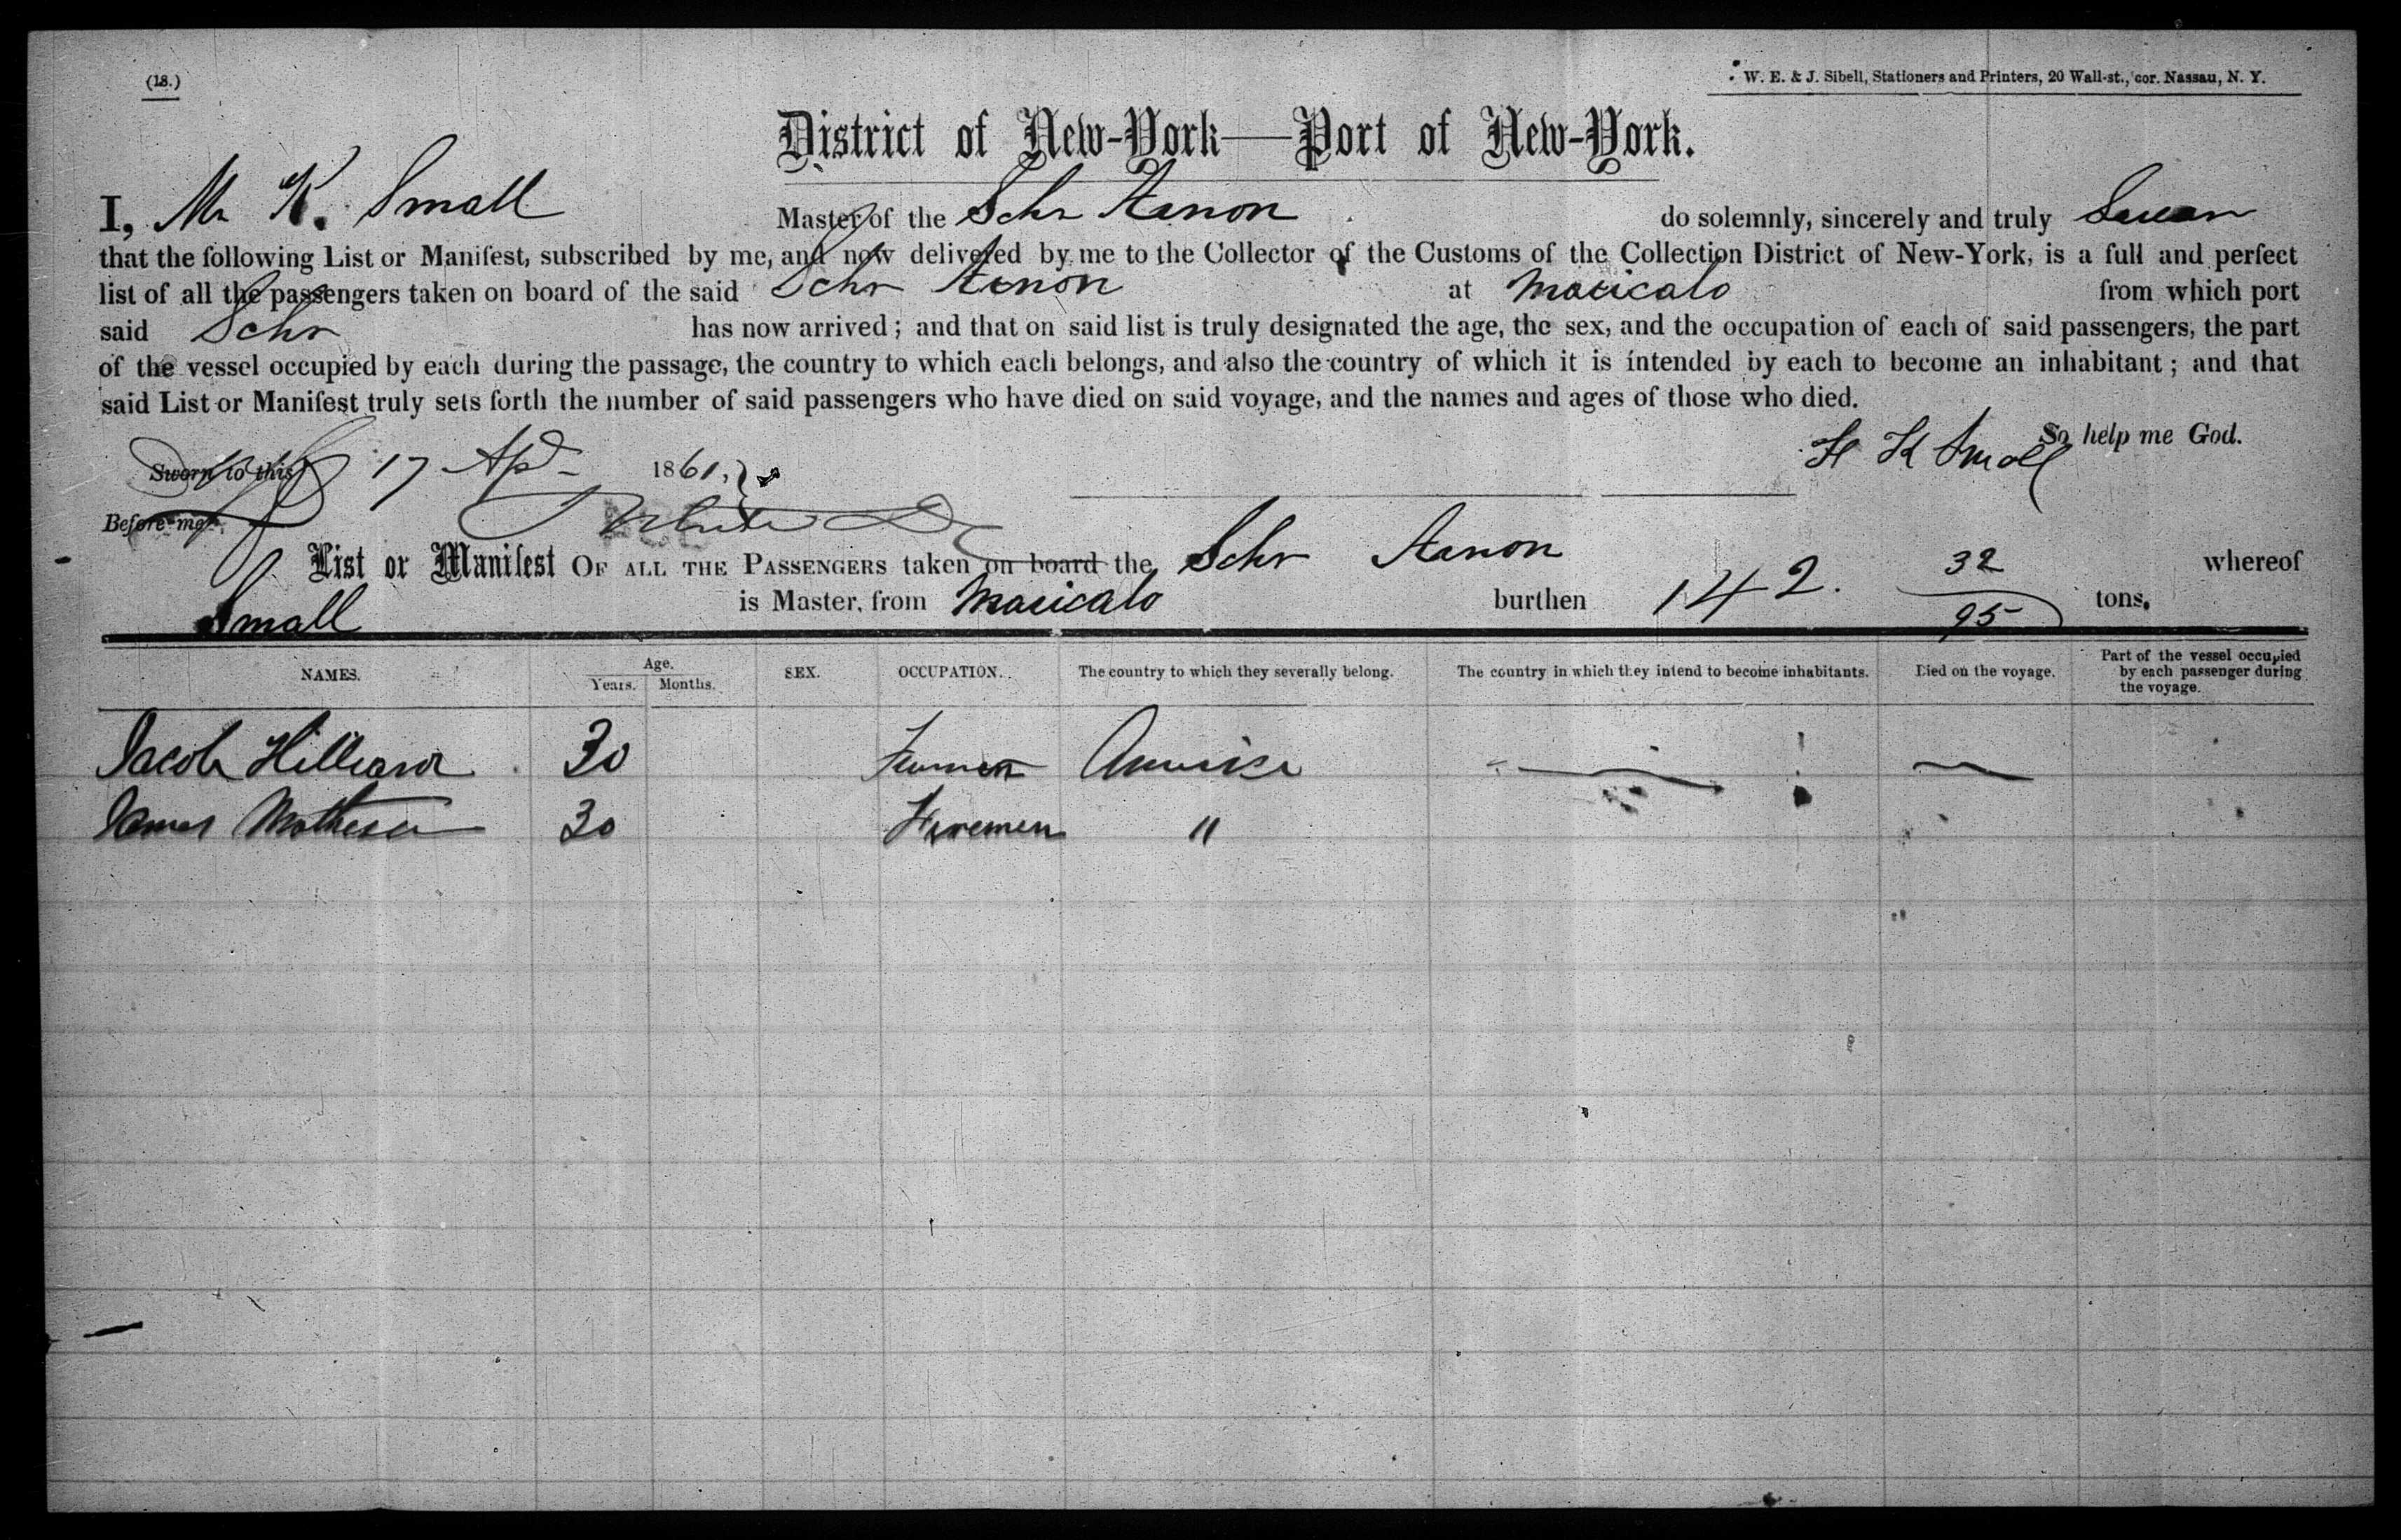 (18.)
W. E. & J. Sibell, Stationers and Printers, 20 Wall-st., cor. Nassau, N. Y.
District of New-York—Port of New-York.
I, K. Small Master of the Schr do solemnly, sincerely and truly Swear
that the following List or Manifest, subscribed by me, and now delivered by me to the Collector of the Customs of the Collection District of New-York, is a full and perfect
list of all the passengers taken on board of the said Schr at Maricalo from which port
said Schr has now arrived; and that on said list is truly designated the age, the sex, and the occupation of each of said passengers, the part
of the vessel occupied by each during the passage, the country to which each belongs, and also the country of which it is intended by each to become an inhabitant; and that
said List or Manifest truly sets forth the number of said passengers who have died on said voyage, and the names and ages of those who died.
So help me God.
Sworn to this 17 Apl 1861, H K Small
Before me,
List or Manifest OF ALL THE PASSENGERS taken on board the Schr whereof
Small is Master, from Maricalo burthen 142. 32/95 tons.
NAMES. Age. Years. Months. SEX. OCCUPATION. The country to which they severally belong. The country in which they intend to become inhabitants. Died on the voyage. Part of the vessel occupied by each passenger during the voyage.
Jacob Hilliard 30 America
James 30 Firemen "